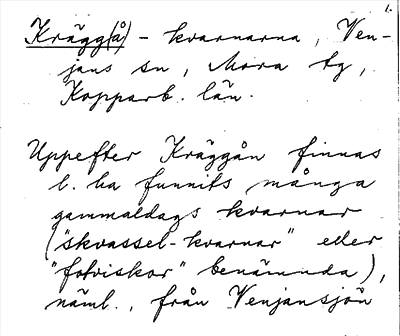 1.
Krägg(å)-kvarnarna, Ven-
jans sn, Mora tg,
Kopparb. län.
Uppefter Kräggån finnas
l. ha funnits många
gammaldags kvarnar
("skvassel-kvarnar" eller
"fotviskor" benämnda),
näml., från Venjansjön